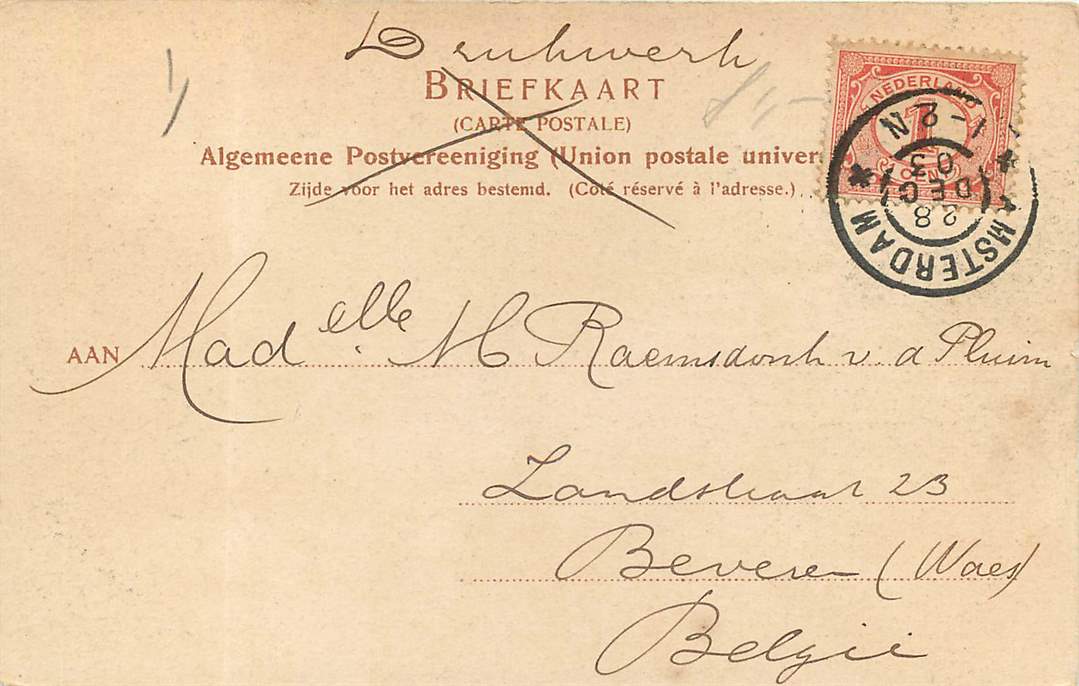 Drukwerk
BRIEFKAART
(CARTE POSTALE)
Algemeene Postvereeniging (Union postale univer
Zijde voor het adres bestemd. (Coté réservé à l'adresse.)
NEDERLAND
1
CENT
AMSTERDAM
28 DEC 03
1-2 N
AAN Madelle M Raemsdonk v. d Pluim
Zandstraat 23
Beveren (Waes)
België